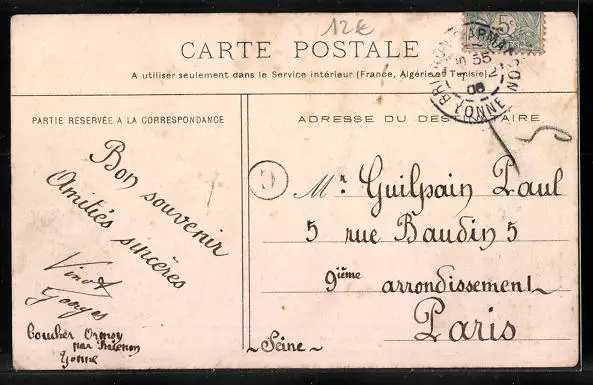 12€
5c
CARTE POSTALE
A utiliser seulement dans le Service intérieur (France, Algérie et Tunisie)
BRION YONNE
06
PARTIE RÉSERVÉE A LA CORRESPONDANCE
ADRESSE DU DESTINATAIRE
Bon souvenir
Amitiés sincères
Vinot
Georges
Boucher Ormoy
par
Yonne
C
Mr. Guilpain Paul
5 rue Baudin 5
9ième arrondissement
Paris
~ Seine ~